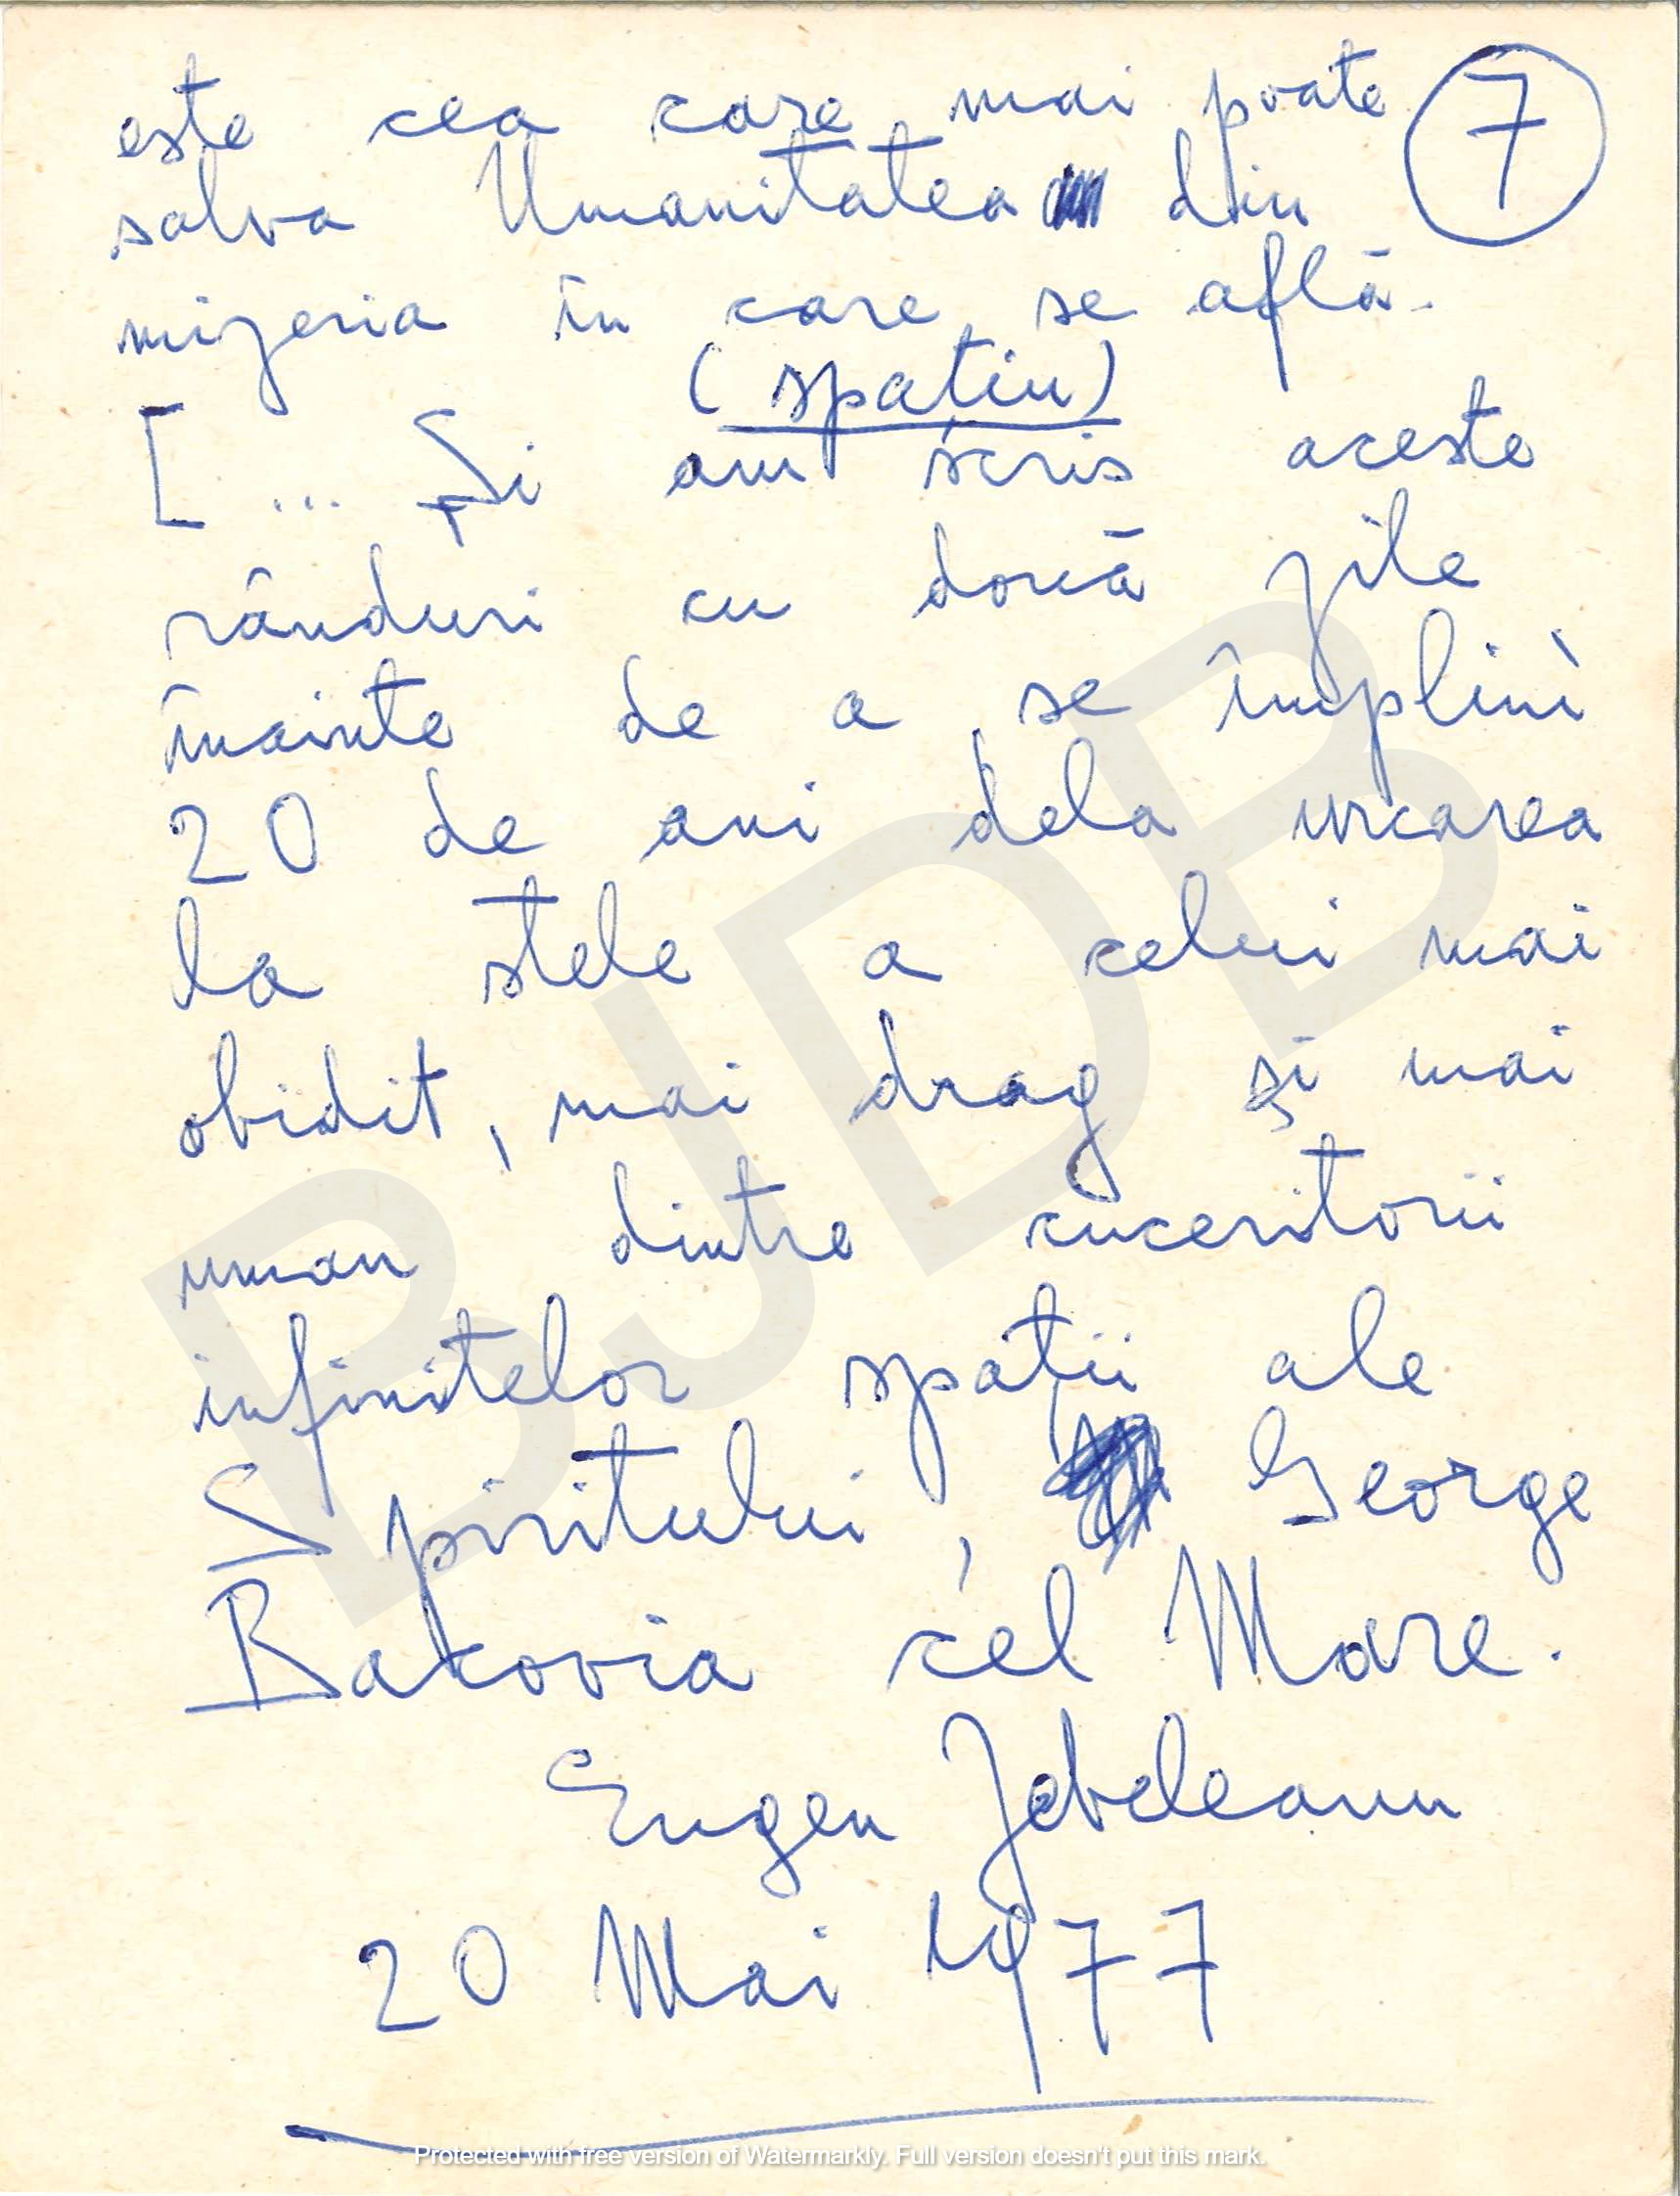 este cea care mai poate 7
salva Umanitatea din
mizeria în care se află.
(spațiu)
[ ... Și am scris aceste
rânduri cu două zile
înainte de a se împlini
20 de ani dela urcarea
la stele a celui mai
obidit, mai drag și mai
uman dintre cuceritorii
infinitelor spații ale
Spiritului, George
Bacovia cel Mare.
Eugen Jebeleanu
20 Mai 1977
BJDB
Protected with free version of Watermarkly. Full version doesn't put this mark.